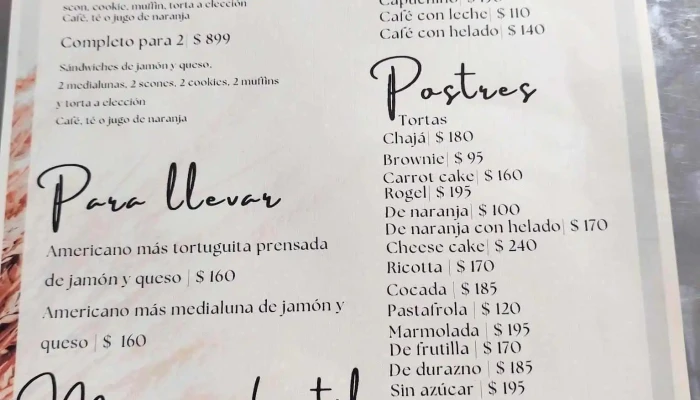 scon, cookie, muffin, torta a elección
Café, té o jugo de naranja
Completo para 2| $ 899
Sándwiches de jamón y queso,
2 medialunas, 2 scones, 2 cookies, 2 muffins
y torta a elección
Café, té o jugo de naranja
Para llevar
Americano más tortuguita prensada
de jamón y queso | $ 160
Americano más medialuna de jamón y
queso | $ 160
Café con leche| $ 110
Café con helado| $ 140
Postres
Tortas
Chajá| $ 180
Brownie| $ 95
Carrot cake| $ 160
Rogel| $ 195
De naranja| $ 100
De naranja con helado| $ 170
Cheese cake| $ 240
Ricotta | $ 170
Cocada | $ 185
Pastafrola | $ 120
Marmolada | $ 195
De frutilla | $ 170
De durazno | $ 185
Sin azúcar | $ 195